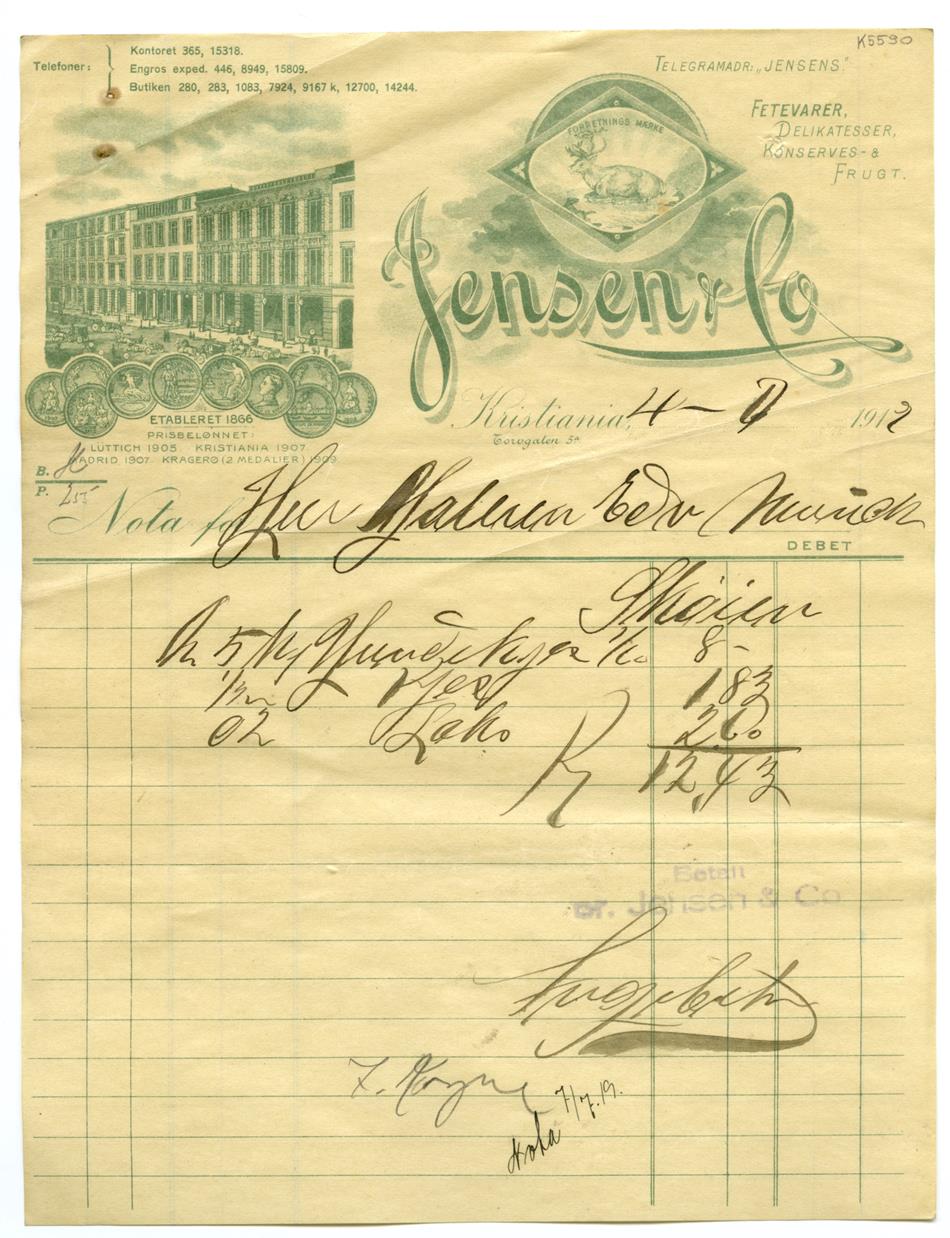 K5590
Telefoner:
Kontoret 365, 15318.
Engros exped. 446, 8949, 15809.
Butiken 280, 283, 1083, 7924, 9167 k, 12700, 14244.
TELEGRAMADR: „JENSENS."
FETEVARER,
DELIKATESSER,
KONSERVES- &
FRUGT.
FORRETNINGS MÆRKE
Jensen & Co
ETABLERET 1866
PRISBELØNNET:
LÜTTICH 1905. KRISTIANIA 1907
MADRID 1907. KRAGERØ (2 MEDALIER) 1909.
Kristiania, 4 - 1912
Torvgaten 5a
B.
P. 255
Nota for Herr Maleren Edv Munch
DEBET
Skøien
5 Kg 8-
183
Laks 260
Kr 12,43
Betalt
pr. Jensen & Co
7/7.19.